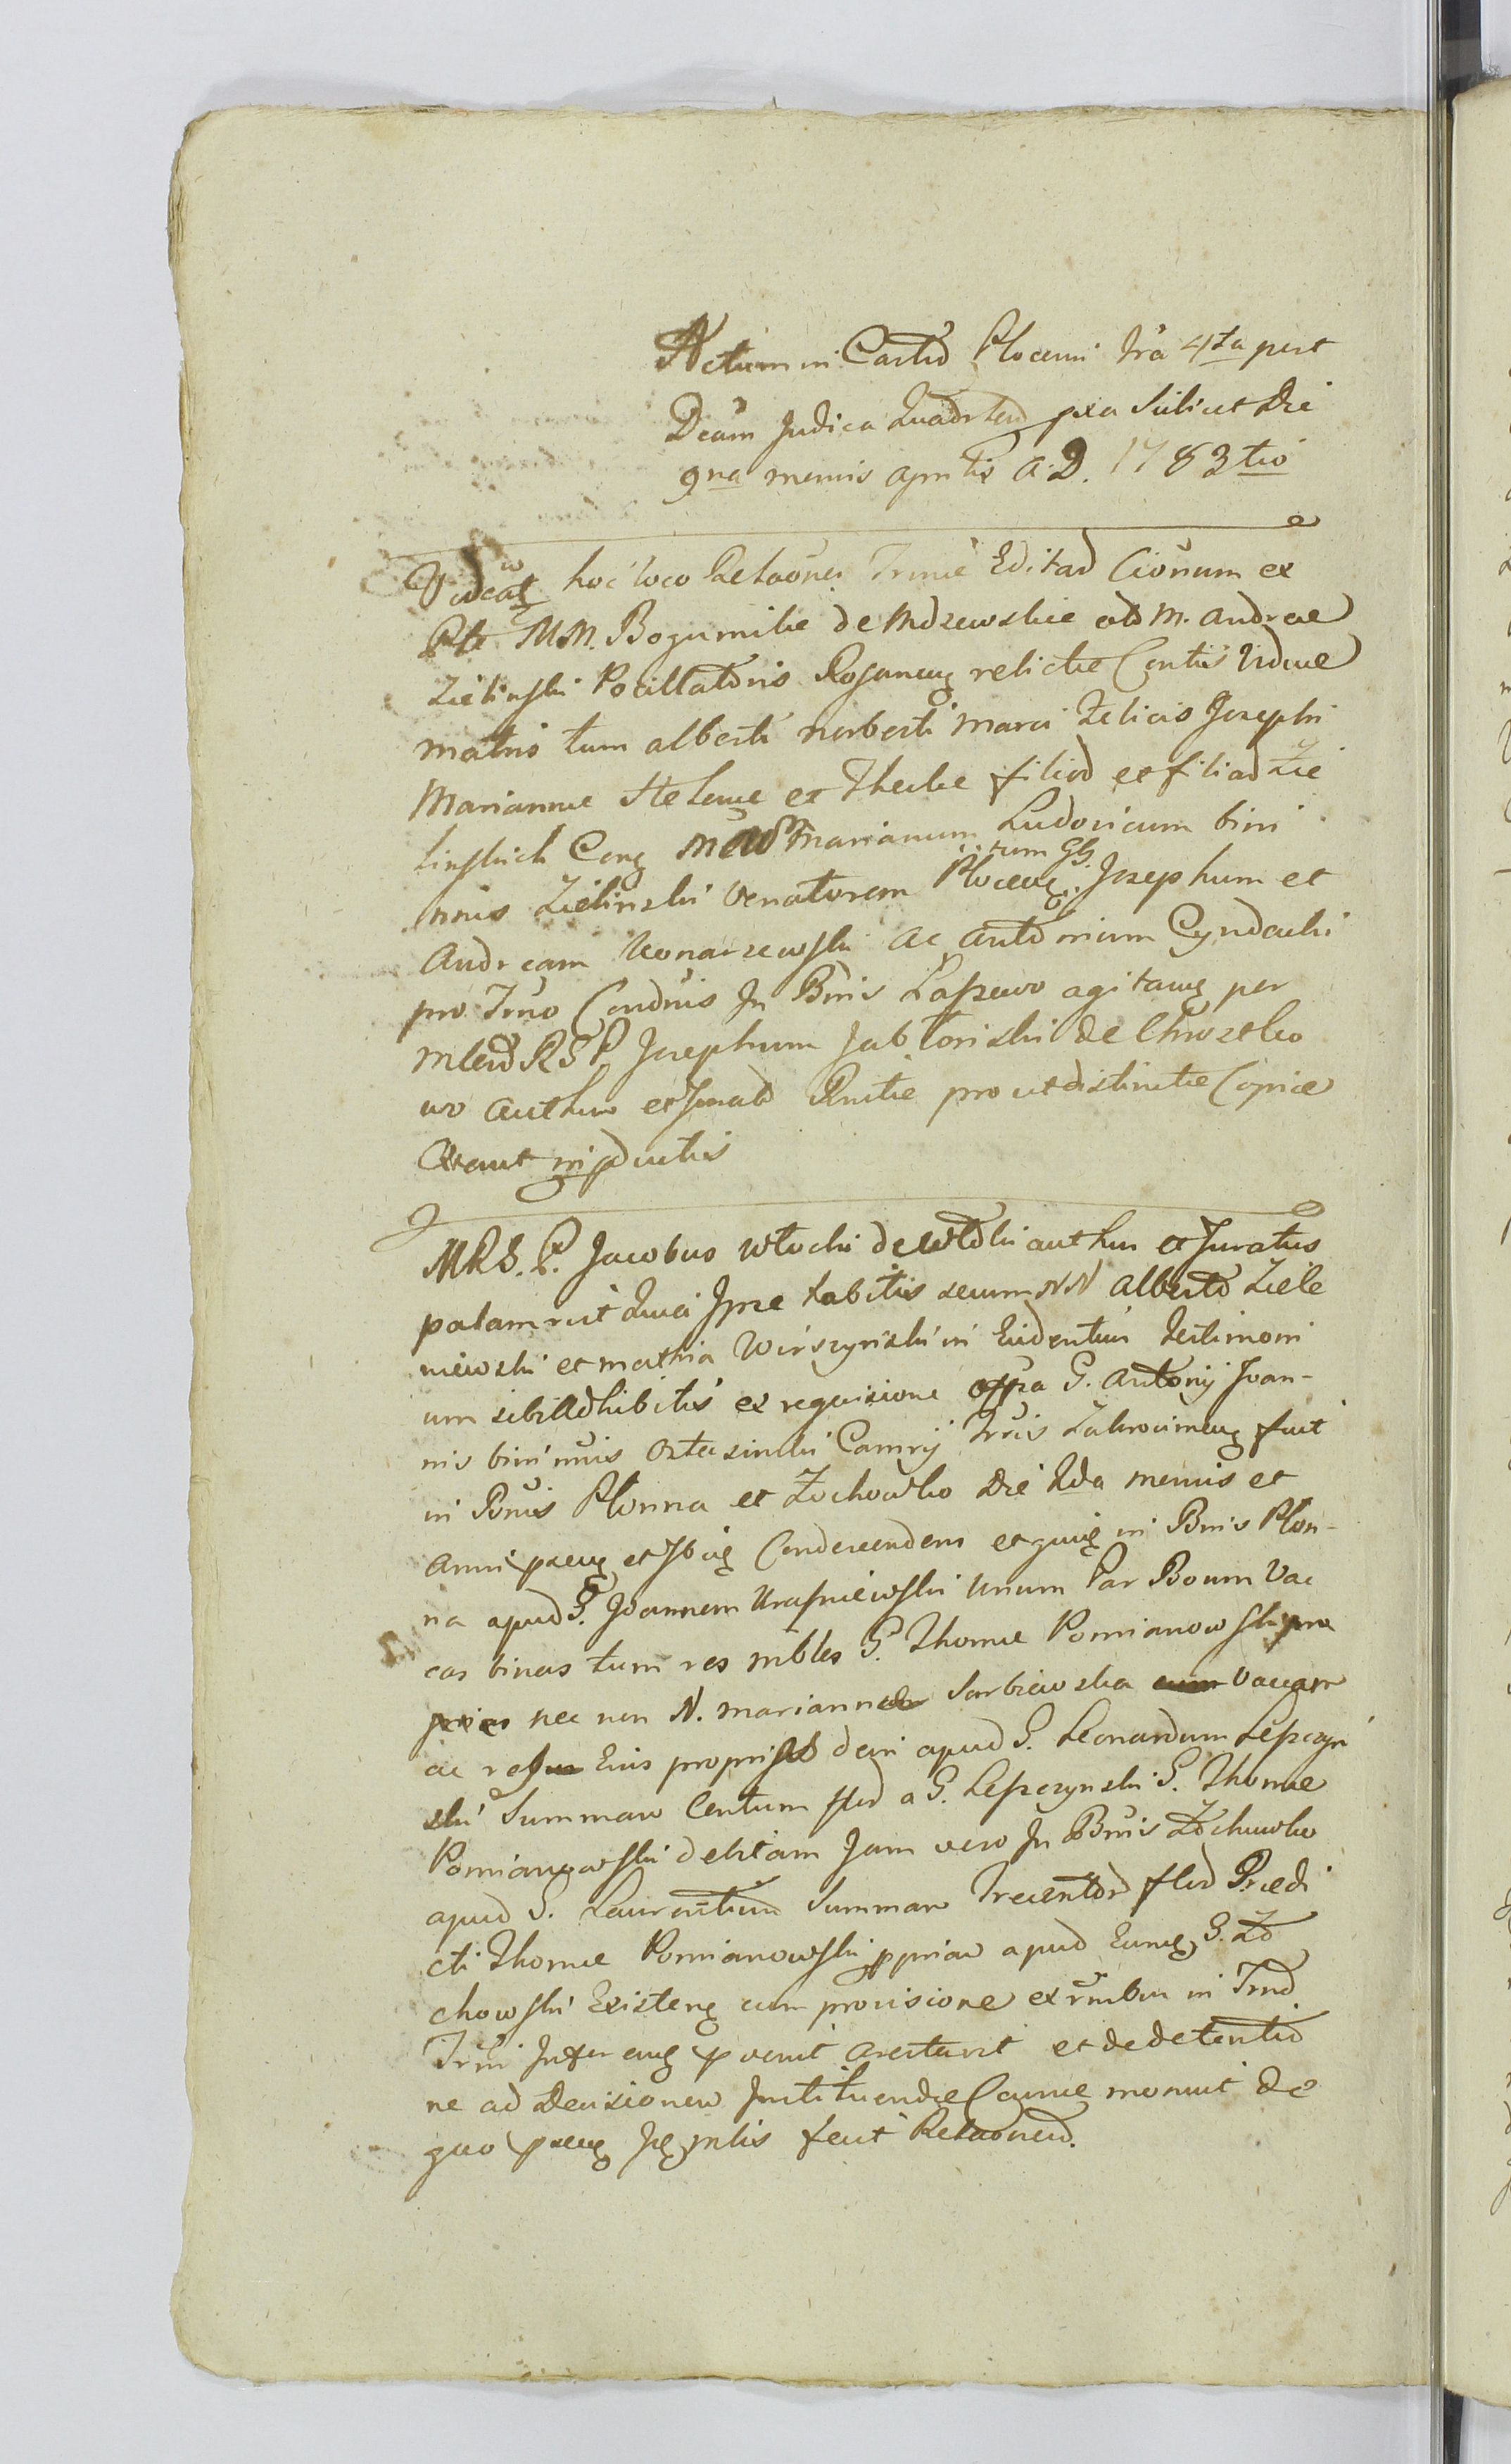 Actum in Castro Plocensi fra 4ta post
Dcam Judica Quadrlem pxa scilicet Die
9na mensis aprilis A. D. 1783tio
hoc loco Relaones Trnae Editad Cionum ex
Pte MM. Bogumilae de Mdzewskie old M. Andreae
Zielinski Pocillatoris Rozanens relictae Contis Viduae
matris tum alberti norberti Marci Felicis Josephi
Mariannae Helenae et Theclae filiod et filiad Zie
linskich Conq Marianum Ludovicum bini
nnis Zielinski Venatorem Plocens tum GG. Josephum et
Andream Konarzewski ac antonium Cyndacki
pro Trno Condnis In Bnis Laszewo agitanq per
Josephum Jabłoński de Chroztko
wo authm et Jurat prout distinctae Copiae
Extant
MRS. P. Jacobus Włocki de authm et Juratus
palam rcit Quia Ipse habitis secum NN Alberto Ziele
niewski et Mathia Wirszyński in Evidentius testimoni
um sibi adhibitis ex requisicione offa G. Antonij Joan-
nis bini nnis Ostaszewski Camrij Trris Zakrocimens fuit
in Bnis Płonna et Żochowko Die 2da mensis et
Anni pxens et Ibiq Condescendens et quiq in Bnis Płon-
na apud G. Joannem Krasniewski unum Par Boum Vac
cas binas tum res mbles G. Thomae Pomianowski pro
prias nec non N. Marianna Sarbiewska vaccam
ac res Eius proprias dein apud G. Leonardum Leszczyń
ski Summam Centum flor a G. Leszczynski G. Thomae
Pomianowski debitam Jam vero In Bnis Żochowko
apud G. Laurentium Summam Trecentor flor Praedi
cti Thomae Pomianowski ppriam apud Eunq G. Żo
chowski Existenq cum provisione ex
arestavit et de detentio
ne ad Decisionem Instituendae Causae monuit de
quo pxens fecit Relaonem.